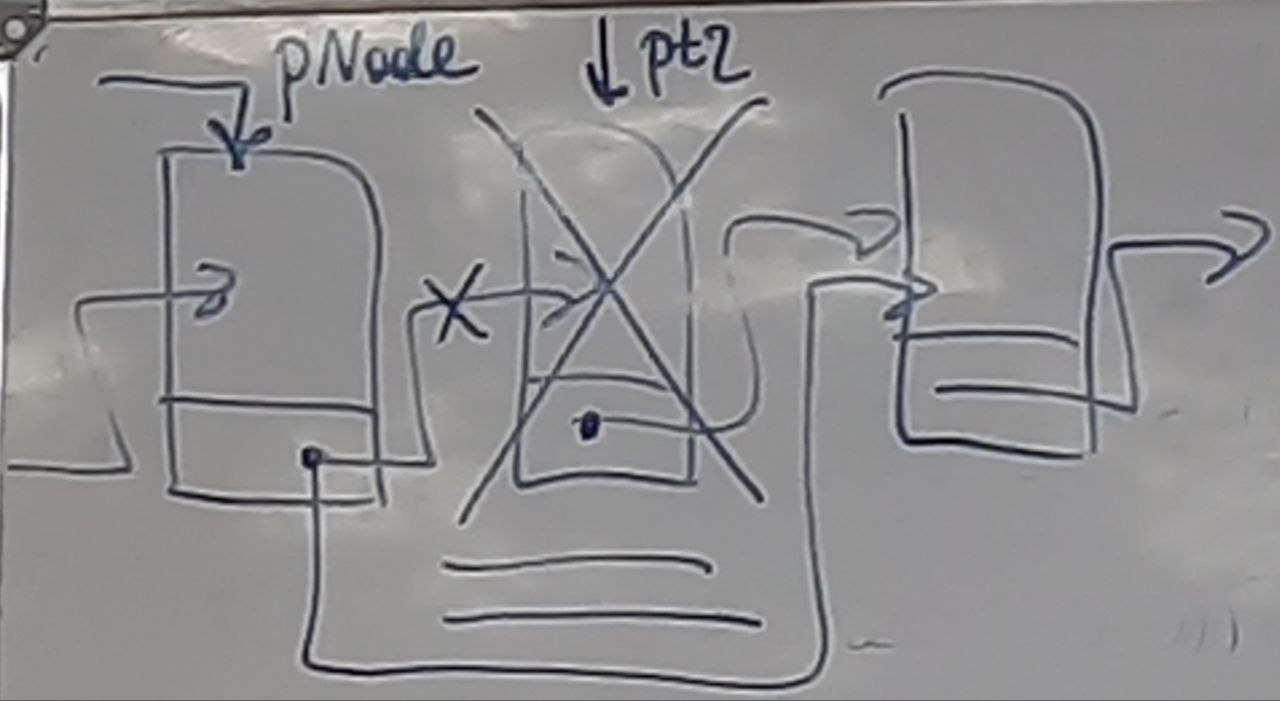 pNode
pt2